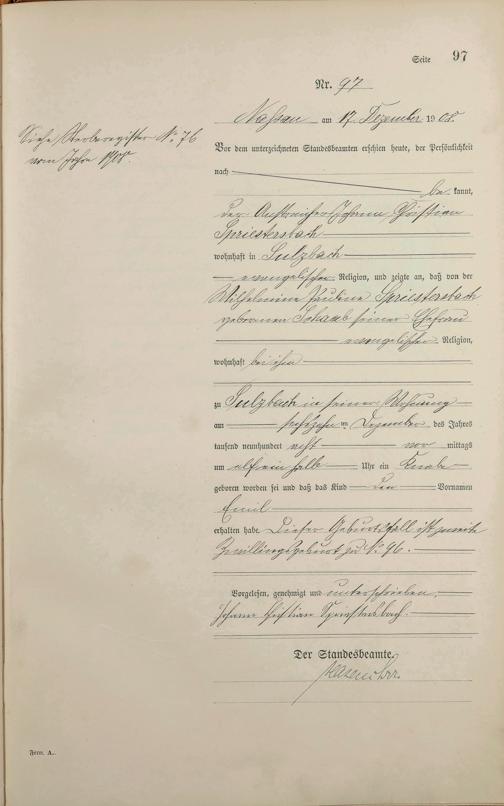 Seite 97
Nr. 97
Nassau am 17. Dezember 1908.
Siehe Sterberegister No 76
vom Jahre 1908.
Vor dem unterzeichneten Standesbeamten erschien heute, der Persönlichkeit
nach
be kannt,
der Anstreicher Johann Christian
Spriestersbach
wohnhaft in Sulzbach
evangelischer Religion, und zeigte an, daß von der
Wilhelmine Pauline Spriestersbach
geborenen Schaub seiner Ehefrau
evangelischer Religion,
wohnhaft bei ihm
zu Sulzbach in seiner Wohnung
am sechszehnten Dezember des Jahres
tausend neunhundert acht vor mittags
um elf ein halb Uhr ein Knabe
geboren worden sei und daß das Kind den Vornamen
Emil
erhalten habe. Dieser Geburtsfall ist zweite
Zwillingsgeburt zu No 96.
Vorgelesen, genehmigt und unterschrieben.
Johann Christian Spriestersbach.
Der Standesbeamte.
Form. A.